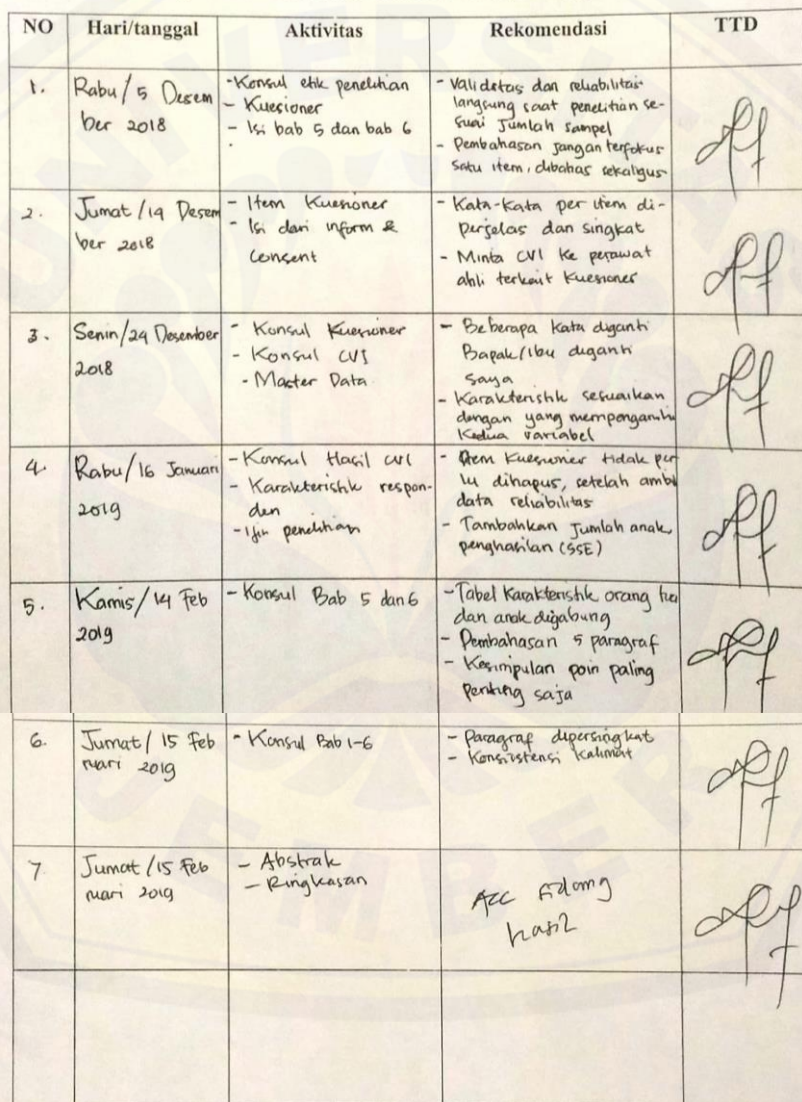 NO Hari/tanggal Aktivitas Rekomendasi TTD
1. Rabu/ 5 Desem
ber 2018
- Konsul etik penelitian
- Kuesioner
- Isi bab 5 dan bab 6
- Validetas dan reliabilitas
langsung saat penelitian se-
suai Jumlah sampel
- Pembahasan jangan terfokus
satu item, dibahas sekaligus
2. Jumat/14 Desem
ber 2018
- Item Kuesioner
- Isi dari inform &
Consent
- Kata-kata per item di-
perjelas dan singkat
- Minta CVI ke perawat
ahli terkait Kuesioner
3. Senin/24 Desember
2018
- Konsul Kuesioner
- Konsul CVI
- Master Data
- Beberapa kata diganti
Bapak/Ibu diganti
saya
- Karakteristik sesuaikan
dengan yang mempengaruhi
kedua variabel
4. Rabu/16 Januari
2019
- Konsul Hasil CVI
- Karakteristik respon-
den
- Ijin penelitian
- Item Kuesioner tidak per
lu dihapus, setelah ambil
data reliabilitas
- Tambahkan Jumlah anak,
penghasilan (SSE)
5. Kamis/14 Feb
2019
- Konsul Bab 5 dan 6
- Tabel Karakteristik orang tua
dan anak digabung
- Pembahasan 5 paragraf
- Kesimpulan poin paling
penting saja
6. Jumat/ 15 Feb
ruari 2019
- Konsul Bab 1-6
- Paragraf dipersingkat
- Konsistensi Kalimat
7 Jumat/15 Feb
ruari 2019
- Abstrak
- Ringkasan
Acc sidang
hasil